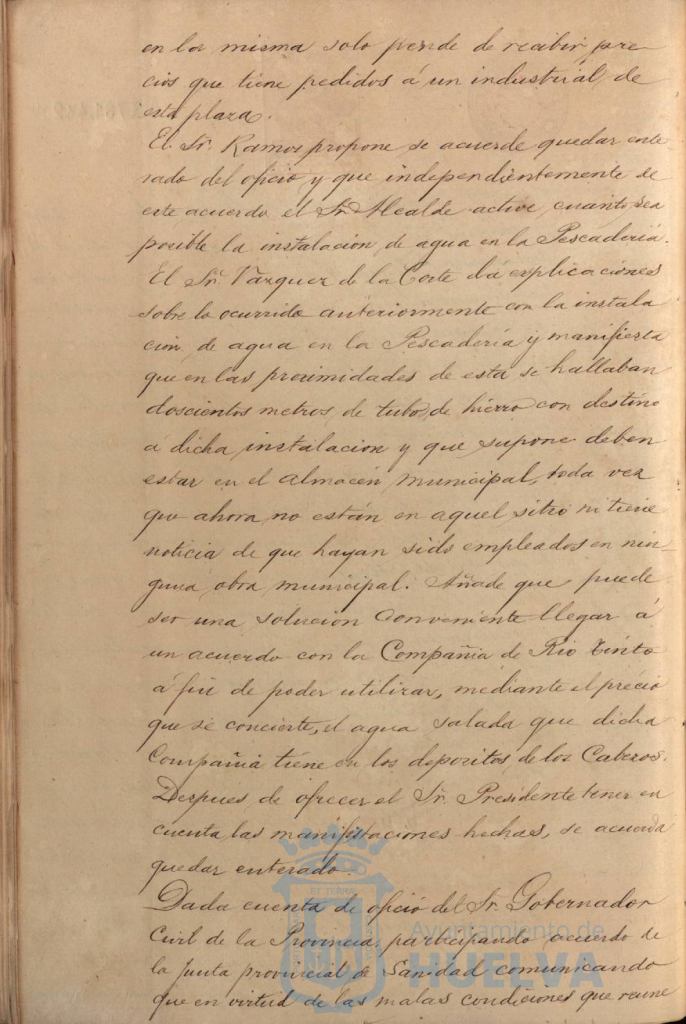 en la misma solo pende de recibir pre-
cios que tiene pedidos á un industrial, de
esta plaza.
El Sr. Ramos propone se acuerde quedar ente
rado del oficio y que independientemente de
este acuerdo el Sr. Alcalde active cuanto sea
posible la instalacion, de agua en la Pescaderia.
El Sr. Vazquez de la Corte dá explicaciones
sobre lo ocurrido anteriormente con la instala
cion, de agua en la Pescadería y manifiesta
que en las proximidades de esta se hallaban
doscientos metros, de tubo, de hierro con destino
á dicha instalacion y que supone deben
estar en el almacén municipal, toda vez
que ahora no están en aquel sitio ni tiene
noticia de que hayan sido empleados en nin-
guna obra municipal. Añade que puede
ser una solución conveniente llegar á
un acuerdo con la Compañia de Rio Tinto
á fin de poder utilizar, mediante el precio
que se concierte, el agua salada que dicha
Compañia tiene en los depositos de los Cabezos.
Despues de ofrecer el Sr. Presidente tener en
cuenta las manifestaciones hechas, se acuerda
quedar enterado.
Dada cuenta de oficio del Sr. Gobernador
Civil de la Provincia, participando acuerdo de
la Junta provincial de Sanidad comunicando
que en virtud de las malas condiciones que reune
Ayuntamiento de
HUELVA